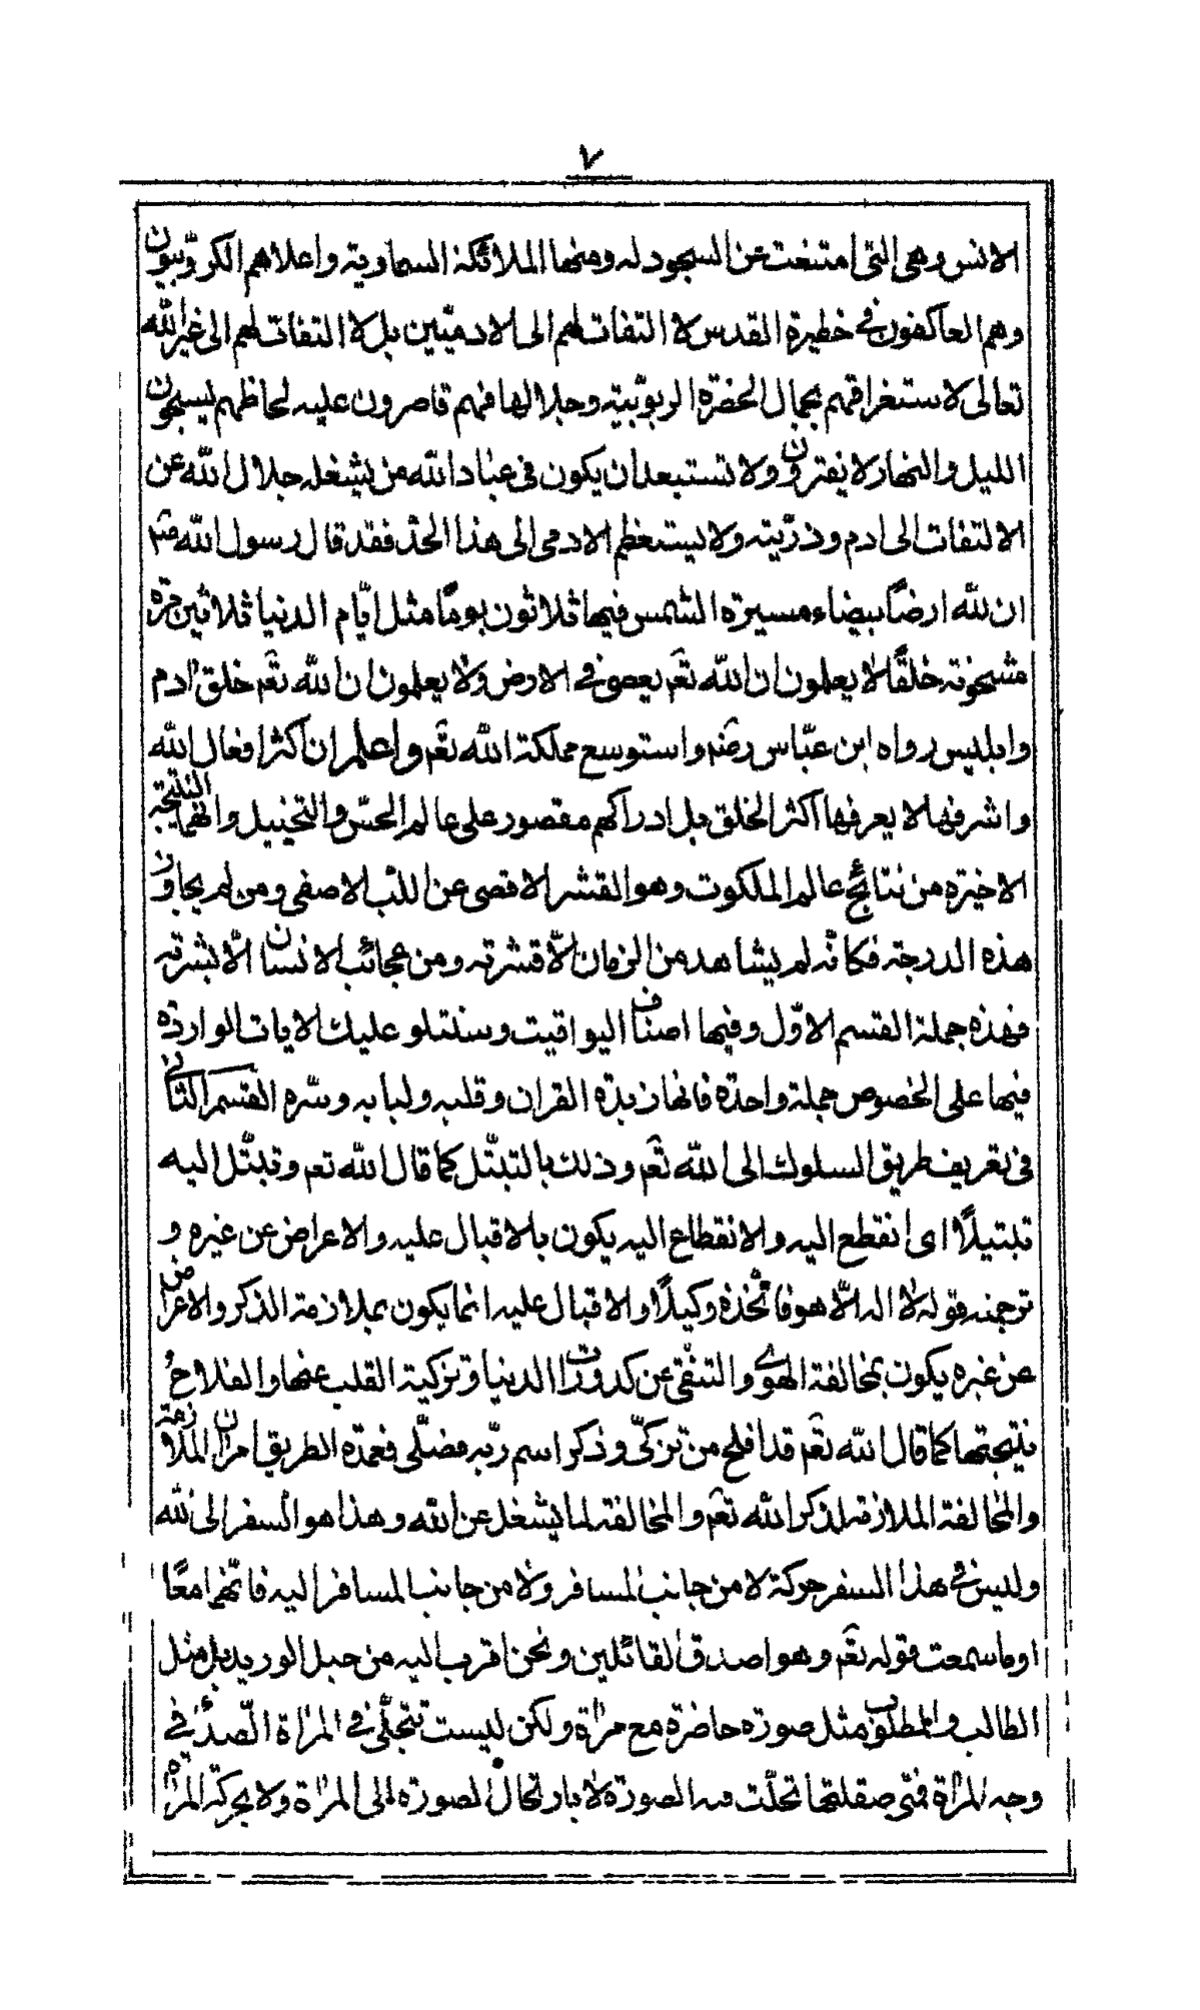 ٧
الانس وهى التى امتنعت عن السجود له ومنها الملائكة السماوية واعلاهم الكروّبيون
وهم العاكفون فى خطيرة القدس لا التفات لهم الى الادميّين بل لا التفات لهم الى غير الله
تعالى لاستغراقهم بجمال الحضرة الربوبّية وجلالها فهم قاصرون عليه لحاظهم يسبحون
الليل والنهار لا يفترون ولا تستبعد ان يكون فى عباد الله من يشغله جلال الله عن
الالتفات الى ادم وذرّيته ولا يستعظم الادمى الى هذا الحدّ فقد قال رسول الله صم
ان لله ارضًا بيضاء مسيرة الشمس فيها ثلاثون يومًا مثل ايّام الدنيا ثلاثين مرة
مشحونة خلقًا لا يعلمون ان الله تعم يعصى فى الارض ولا يعلمون ان الله تعم خلق ادم
وابليس رواه ابن عبّاس رضم واستوسع مملكة الله تعم واعلم ان اكثر افعال الله
واشرفها لا يعرفها اكثر الخلق بل ادراكهم مقصور على عالم الحسّ والتخييل وانهما النتيجة
الاخيرة من نتائج عالم الملكوت وهو القشر الاقصى عن اللبّ الاصفى ومن لم يجاوز
هذه الدرجة فكانّه لم يشاهد من الرمان الّا قشرته ومن عجائب الانسان الّا بشرته
فهذه جملة القسم الاوّل وفيها اصناف اليواقيت وسنتلو عليك الايات الواردة
فيها على الخصوص جملة واحدة فانها زبدة القران وقلبه ولبابه وسّره القسم الثانى
فى تعريف طريق السلوك الى الله تعم وذلك بالتبتّل كما قال الله تعم وتبتّل اليه
تبتيلًا اى انقطع اليه والانقطاع اليه يكون بالاقبال عليه والاعراض عن غيره و
ترجمته قوله لا اله الّا هو فاتّخذه وكيلًا والاقبال عليه انما يكون بملازمة الذكر والاعراض
عن غيره يكون بمخالفة الهوى والتنقّى عن كدورات الدنيا وتزكية القلب عنها والفلاح
نتيجتها كما قال الله تعم قد افلح من تزكّى وذكر اسم ربّه فصلّى فعمدة الطريق امران الملازمة
والمخالفة الملازمة لذكر الله تعم والمخالفة لما يشغل عن الله وهذا هو السفر الى الله
وليس فى هذا السفر حركة لا من جانب المسافر ولا من جانب المسافر اليه فانّهما معًا
اوما سمعت قوله تعم وهو اصدق القائلين ونحن اقرب اليه من حبل الوريد بل مثل
الطالب والمطلوب مثل صورة حاضرة مع مراة ولكن ليست تتجلّى فى المراة الّصدء فى
وجه المراة فمتى صقلتها تجلّت فيه الصورة لا بارتحال الصورة الى المراة ولا بحركة المراة